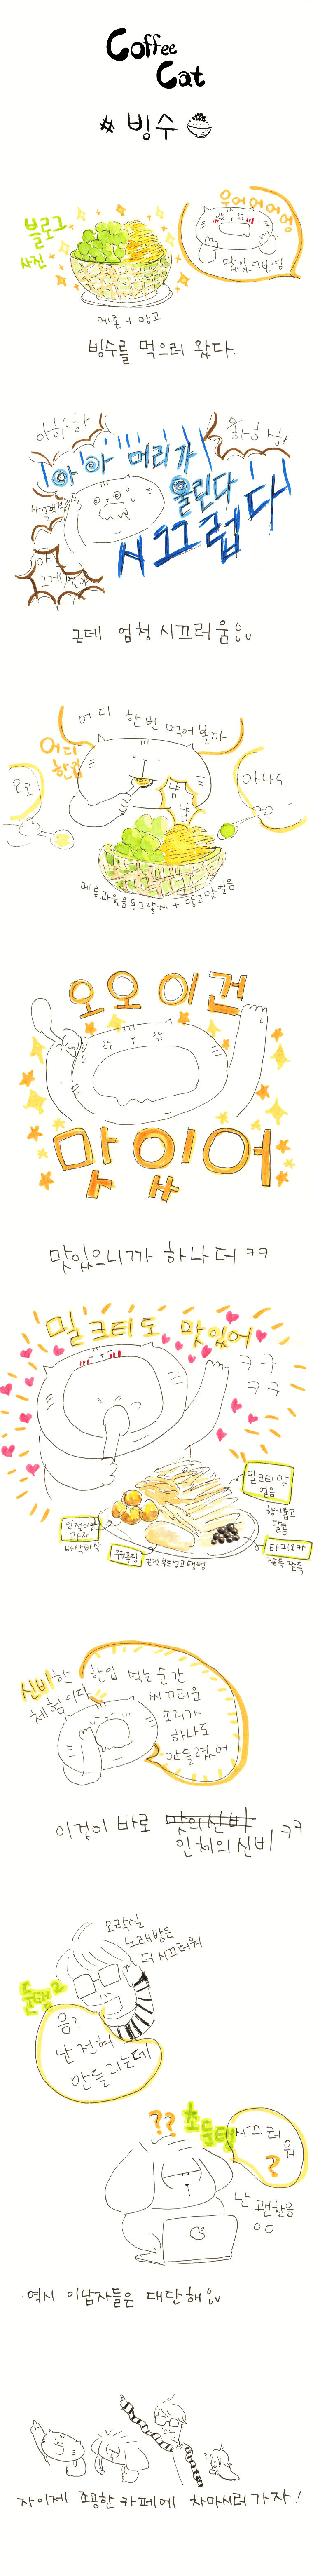 Coffee
Cat
# 빙수
블로그
사진
우어어어엉
맛있어보영
메론 + 망고
빙수를 먹으러 왔다.
아하하
우하하하
아아 머리가
울린다
시끄럽다
시끌벅적
야
그게 말야
근데 엄청 시끄러움
어디 한번 먹어볼까
어디
한입
오오
아나도
냠
냠
메론과육을동그랗게 + 망고맛얼음
오오 이건
맛있어
맛있으니까 하나 더 ㅋㅋ
밀크티도 맛있어
ㅋㅋ
ㅋㅋ
밀크티맛
얼음
향기롭고
달콤
인절미맛
과자
바삭바삭
우유푸딩
타피오카
쫀득 쫀득
신비한
체험이다
한입 먹는순간
씨끄러운
소리가
하나도
안들렸어
이것이 바로 맛의신비
인체의신비 ㅋㅋ
오락실
노래방은
더 시끄러워
음?
난 전혀
안들리는데
??
시끄러
워
?
난 괜찮음
ㅇㅇ
역시 이남자들은 대단해
자이제 조용한 카페에 차마시러 가자!